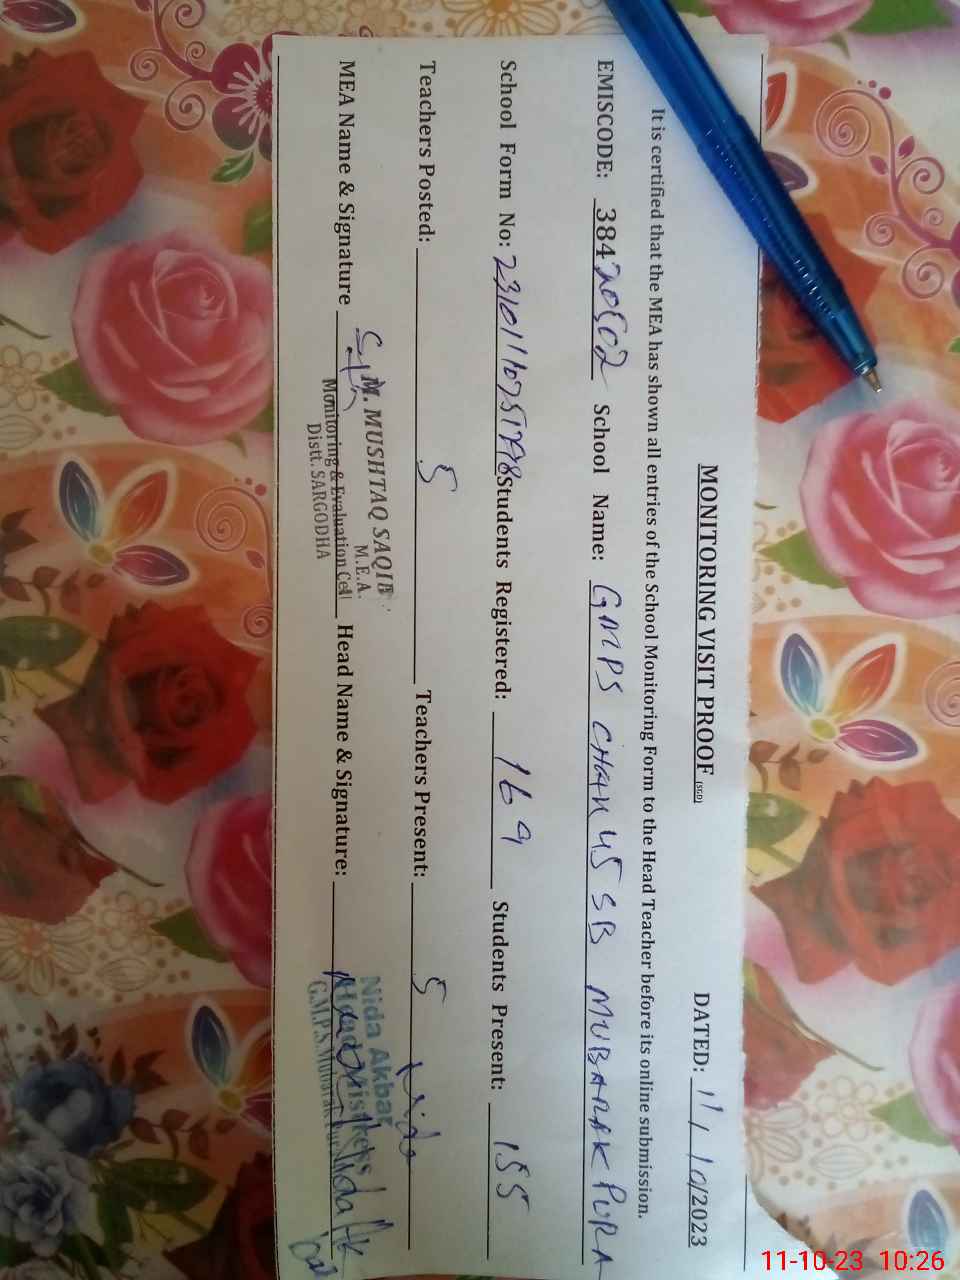 MONITORING VISIT PROOF (SGD) DATED: 11/10/2023
It is certified that the MEA has shown all entries of the School Monitoring Form to the Head Teacher before its online submission.
EMISCODE: 38420502 School Name: GMPS CHAK 45 SB MUBARAK PURA
School Form No: Students Registered: 169 Students Present: 155
Teachers Posted: 5 Teachers Present: 5 Nida
MEA Name & Signature Head Name & Signature:
M. MUSHTAQ SAQIB
M.E.A.
Monitoring & Evaluation Cell
Distt. SARGODHA
Nida Akbar
Headmistress
G.M.P.S Mubarak
11-10-23 10:26